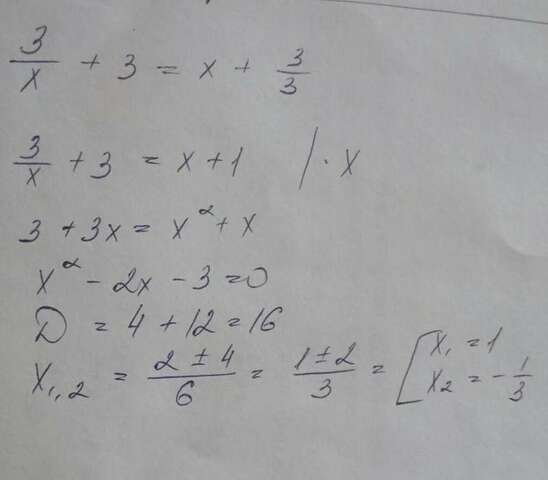 3/x + 3 = x + 3/3
3/x + 3 = x + 1 | · x
3 + 3x = x² + x
x² - 2x - 3 = 0
D = 4 + 12 = 16
x₁,₂ = (2 ± 4)/6 = (1 ± 2)/3 = [ x₁ = 1
x₂ = - 1/3